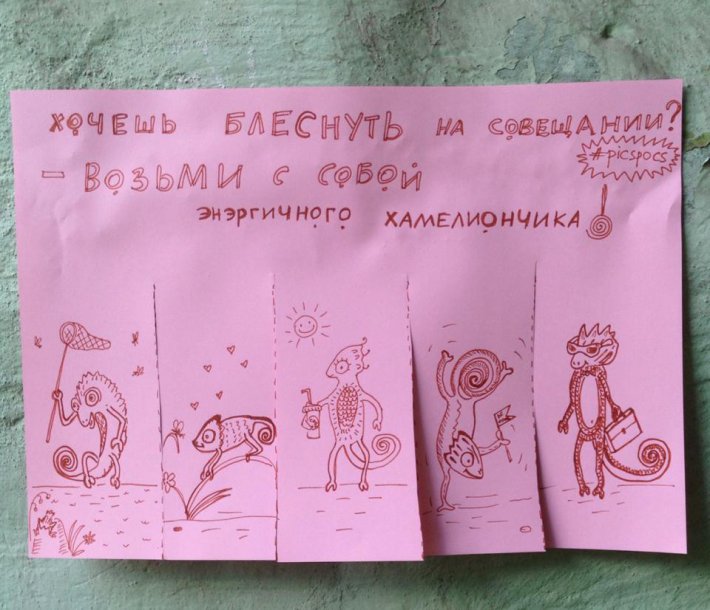 ХОЧЕШЬ БЛЕСНУТЬ НА СОВЕЩАНИИ?
#picspocs
- ВОЗЬМИ С СОБОЙ
ЭНЭРГИЧНОГО ХАМЕЛИОНЧИКА!